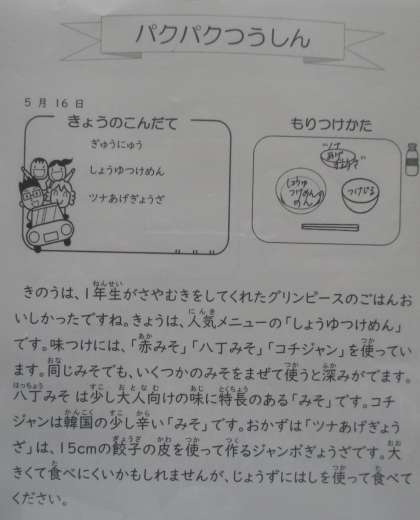 パクパクつうしん
5月16日
きょうのこんだて
ぎゅうにゅう
しょうゆつけめん
ツナあげぎょうざ
もりつけかた
ツナ
あげ
しょうゆ
つけめんの
めん
つけじる
きのうは、1年生がさやむきをしてくれたグリンピースのごはんお
いしかったですね。きょうは、人気メニューの「しょうゆつけめん」
です。味つけには、「赤みそ」「八丁みそ」「コチジャン」を使ってい
ます。同じみそでも、いくつかのみそをまぜて使うと深みがでます。
八丁みそ は少し大人向けの味に特長のある「みそ」です。コチ
ジャンは韓国の少し辛い「みそ」です。おかずは「ツナあげぎょう
ざ」は、15cmの餃子の皮を使って作るジャンボぎょうざです。大
きくて食べにくいかもしれませんが、じょうずにはしを使って食べて
ください。